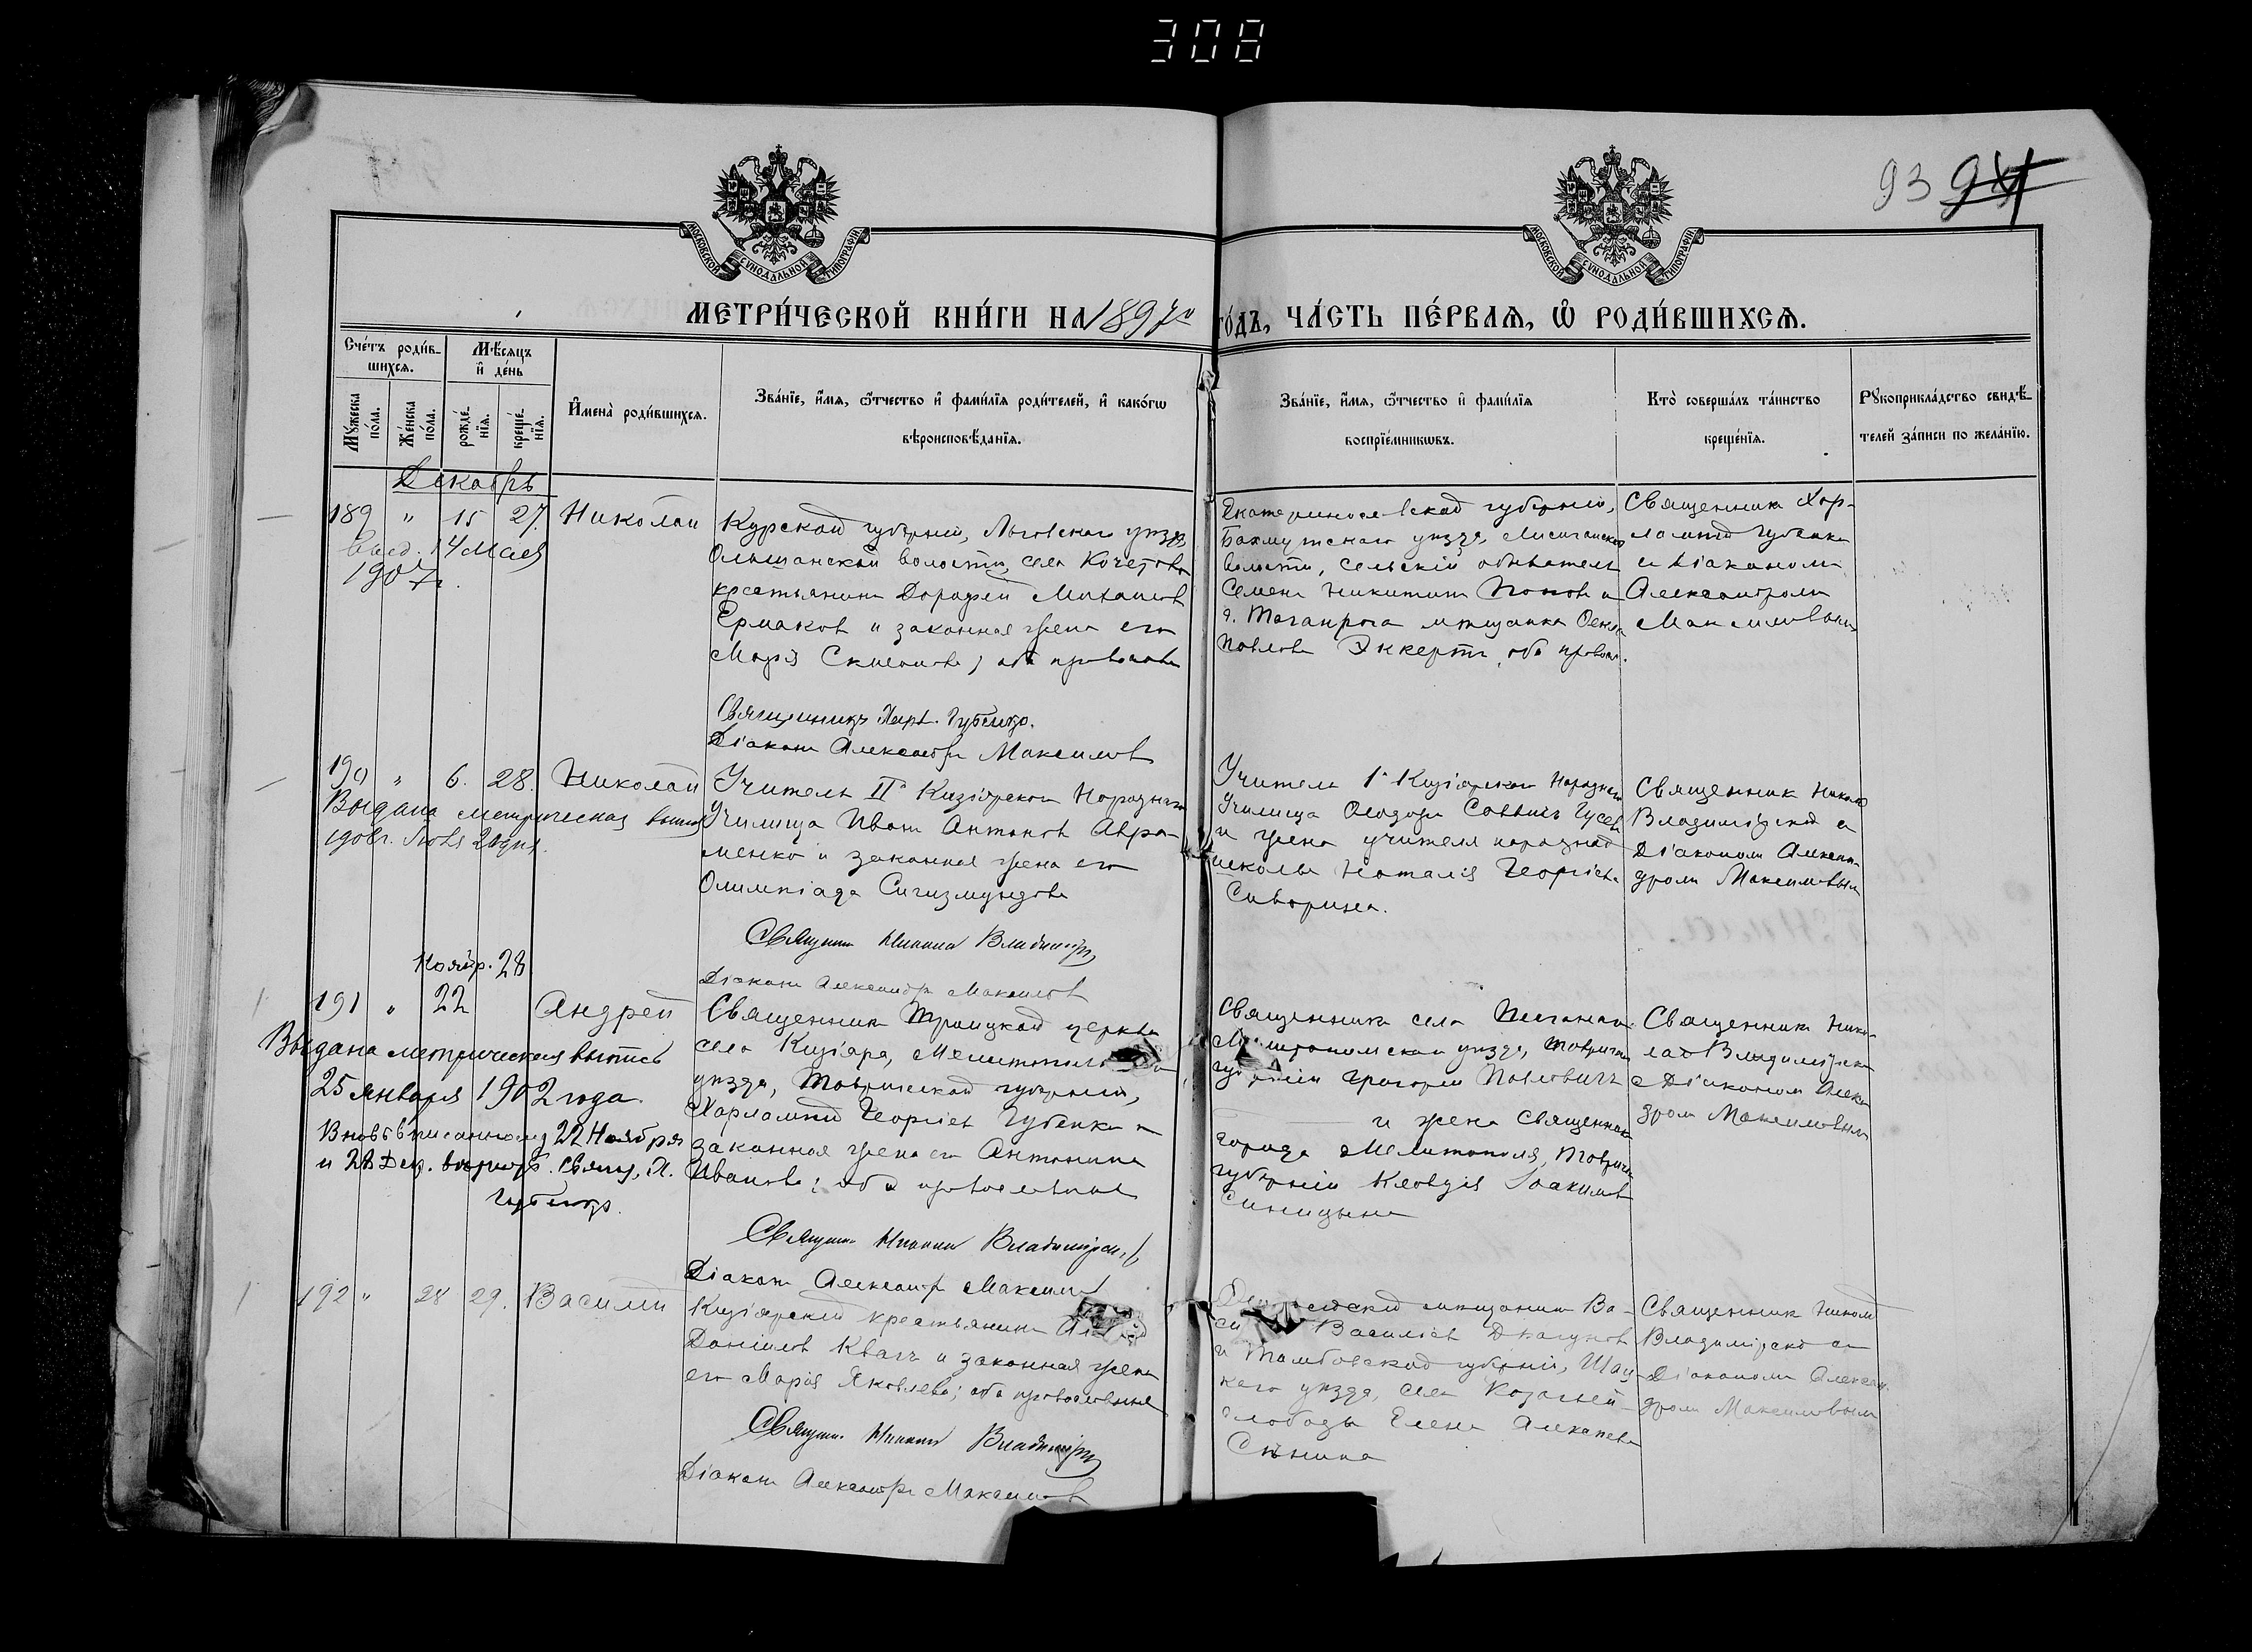 308
93 94
МОСКОВСКОЙ СѴНОДАЛЬНОЙ ТИПОГРАФІИ
МОСКОВСКОЙ СѴНОДАЛЬНОЙ ТИПОГРАФІИ
МЕТРИ́ЧЕСКОЙ КНИ́ГИ НА 1897й ГО́ДЪ, ЧА́СТЬ ПЕ́РВАѦ, Ѡ РОДИ́ВШИХСѦ.
Сче́тъ роди́в-
шихсѧ.
Мѣ́сѧцъ
и҆ де́нь
Мꙋ́жеска
по́ла.
Же́нска
по́ла.
рожде́-
нїѧ.
креще́-
нїѧ.
И҆мена̀ роди́вшихсѧ.
Зва́нїе, и҆́мѧ, ѻ҆́тчество и҆ фами́лїѧ роди́телей, и҆ како́гѡ
вѣроисповѣ́данїѧ.
Зва́нїе, и҆́мѧ, ѻ҆́тчество и҆ фами́лїѧ
воспрїе́мникѡвъ.
Кто̀ соверша́лъ та́инство
креще́нїѧ.
Рꙋкоприкла́дство свидѣ́-
телей за́писи по жела́нїю.
Декабрь
189 " 15 27. Николай
14 мая
1907 г.
Курской губерніи, Льговскаго уѣзда
Ольшанской волости, села Кочетова
крестьянинъ Дорофей Михаиловъ
Ермаковъ и законная жена его
Марія Симонова, оба православн
Священникъ Харл. Губенко.
Діаконъ Александръ Максимовъ
Екатеринославской губерніи,
Бахмутскаго уѣзда, Лисичанской
волости, сельскій обыватель
Семенъ Никитинъ Поповъ и
г. Таганрога мѣщанка
Павлова Эккертъ, оба правосл.
Священникъ Хар-
лампій Губенко
съ діакономъ
Александромъ
Максимовымъ
190 " 6. 28. Николай
Выдана метрическая выпись
Учитель II-го Кизіярскаго Народнаго
Училища Иванъ Антоновъ Авра-
менко и законная жена его
Олимпіада Сигизмундова
Священ. Николай Владимірскій
Діаконъ Александръ Максимовъ
Учитель 1-го Кизіярскаго Народнаго
Училища Ѳеодоръ Саввичъ Гусевъ
и жена учителя народной
школы Наталія Георгіева
Сиворина.
Священникъ Николай
Владимірскій съ
Діакономъ Алексан-
дромъ Максимовымъ
Ноябр. 28
191 " 22 Андрей
Выдана метрическая выпись
25 января 1902 года.
Вновь вписанному 22 Ноября
и 28 Дек. Свящ. Х.
Губенко.
Священникъ Троицкой церкви
села Кизіяра, Мелитопольскаго
уѣзда, Таврической губерніи,
Харлампій Георгіевъ Губенко и
законная жена его Антонина
Иванова; оба православные
Священ. Николай Владимірскій
Діаконъ Александръ Максимовъ
Священникъ села
Мелитопольскаго уѣзда, Таврич.
губерніи Григорій Павловичъ
и жена священника
города Мелитополя, Таврич.
губерніи Клавдія Іоакимова
Синицына
Священникъ Нико-
лай Владимірскій
съ Діакономъ Алексан
дромъ Максимовымъ
192 " 28 29. Василій
Кизіярскій крестьянинъ
Даніиловъ Квачъ и законная жена
его Марія Яковлева; оба православные
Священ. Николай Владимірскій
Діаконъ Александръ Максимовъ
мѣщанинъ Ва-
си Василіевъ Драгуновъ
и Тамбовской губерніи, Шац-
каго уѣзда, села Казачьей
слободы Елена Алексѣева
Сѣнина
Священникъ Николай
Владимірскій съ
Діакономъ Алексан-
дромъ Максимовымъ